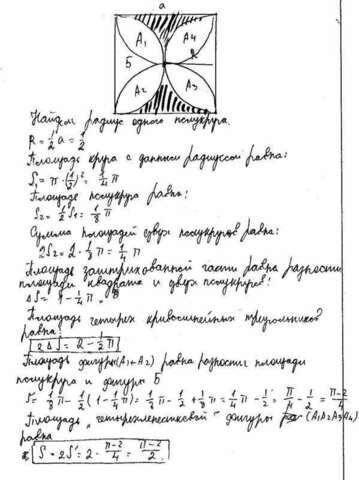 a
A₁
A₄
Б
R
A₂
A₃
Найдём радиус одного полукруга.
R = 1/2 a = 1/2
Площадь круга с данным радиусом равна:
S₁ = π·(1/2)² = 1/4 π
Площадь полукруга равна:
S₂ = 1/2 S₁ = 1/8 π
Сумма площадей двух полукругов равна:
2S₂ = 2·1/8 π = 1/4 π
Площадь заштрихованной части равна разности
площади квадрата и двух полукругов:
ΔS = 1 - 1/4 π =
Площадь четырех криволинейных треугольников
равна:
2ΔS = 2 - 1/2 π
Площадь фигуры (A₁+A₂) равна разности площади
полукруга и фигуры Б
S = 1/8 π - 1/2 (1 - 1/4 π) = 1/8 π - 1/2 + 1/8 π = 1/4 π - 1/2 = π/4 - 1/2 = π-2/4
Площадь "четырехлепестковой" фигуры (A₁A₂A₃A₄)
равна
S = 2S' = 2·π-2/4 = π-2/2